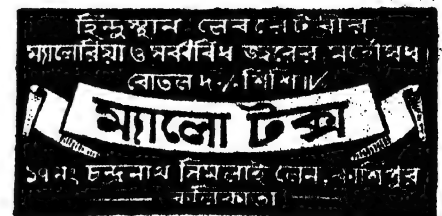 হিন্দুস্থান লেবরেটরীর
ম্যালেরিয়া ও সর্ব্ববিধ জ্বরের মহৌষধ
বোতল দ০ শিশি॥৵
ম্যালো টক্স
১৭নং চন্দ্রনাথ সিমলাই লেন, কাশিপুর
কলিকাতা